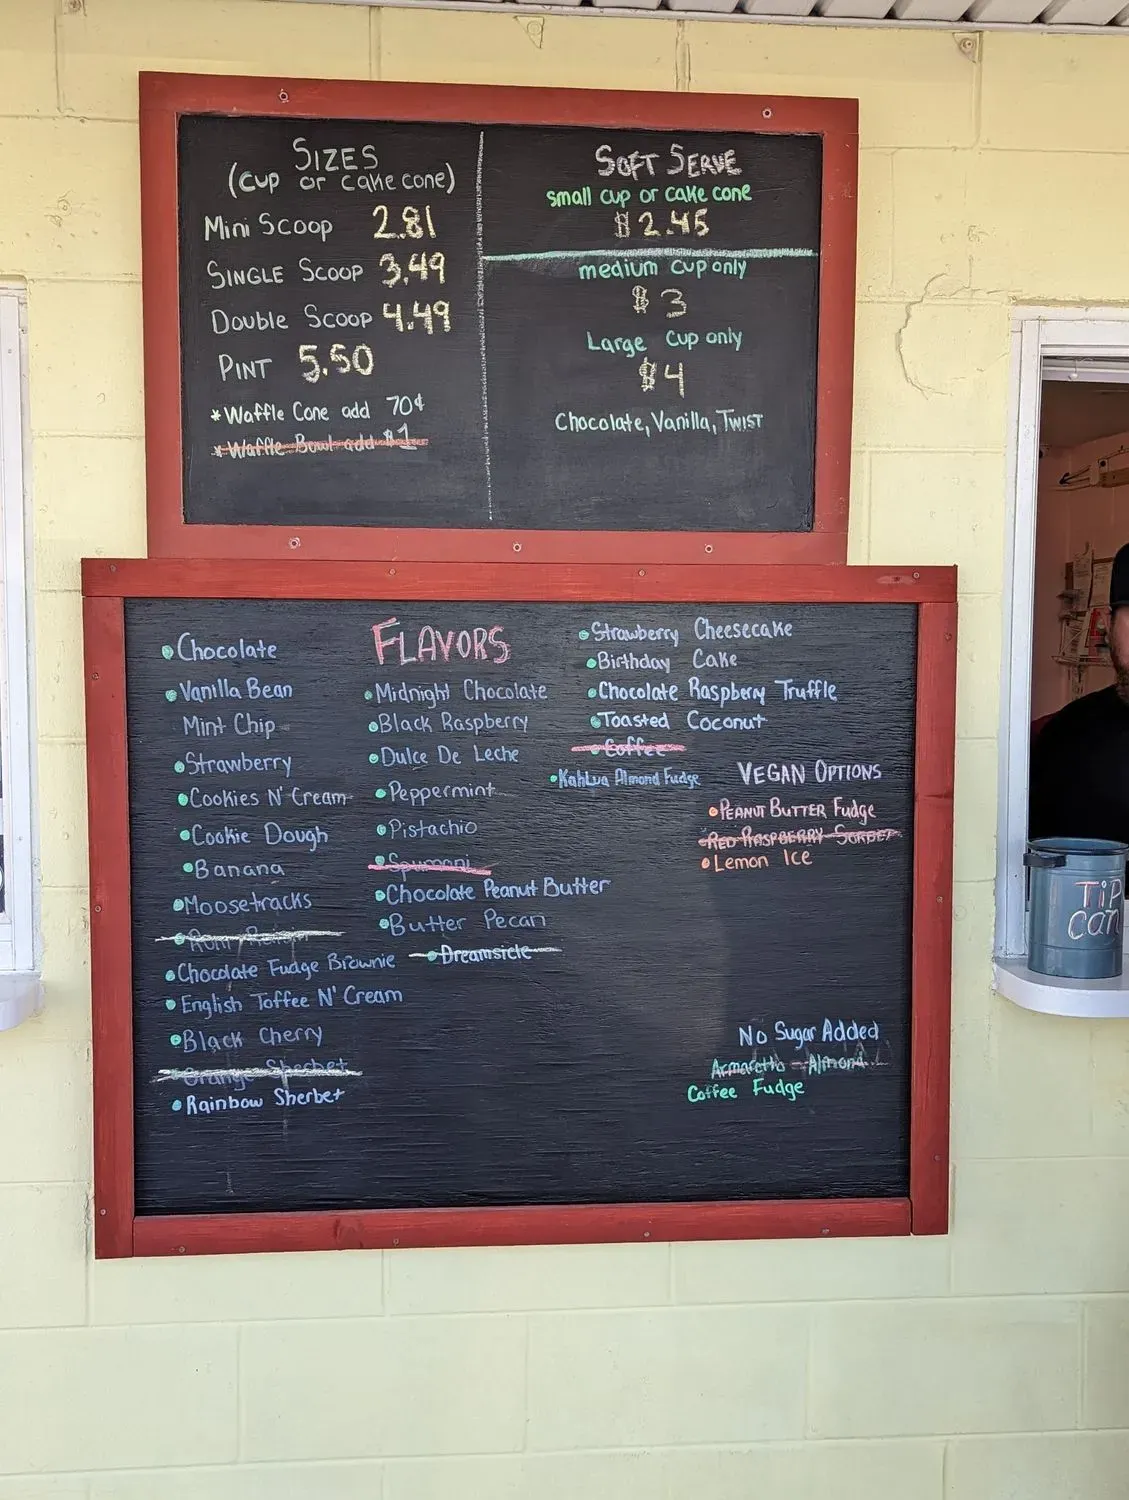 SIZES
(cup or cake cone)
Mini Scoop 2.81
SINGLE SCOOP 3.49
DOUBLE SCOOP 4.49
PINT 5.50
*Waffle Cone add 70¢
*Waffle Bowl add $1
SOFT SERVE
small cup or cake cone
$2.45
medium cup only
$3
Large cup only
$4
Chocolate, Vanilla, TWIST
FLAVORS
Chocolate
Vanilla Bean
Mint Chip
Strawberry
Cookies N' Cream
Cookie Dough
Banana
Moosetracks
Rum Raisin
Chocolate Fudge Brownie
English Toffee N' Cream
Black Cherry
Orange Sherbet
Rainbow Sherbet
Midnight Chocolate
Black Raspberry
Dulce De Leche
Peppermint
Pistachio
Spumoni
Chocolate Peanut Butter
Butter Pecan
Dreamsicle
Strawberry Cheesecake
Birthday Cake
Chocolate Raspberry Truffle
Toasted Coconut
Coffee
KahLua Almond Fudge
VEGAN OPTIONS
PEANUT BUTTER Fudge
RED RASPBERRY SORBET
Lemon Ice
No Sugar Added
Armaretto Almond
Coffee Fudge
TIP
CAN